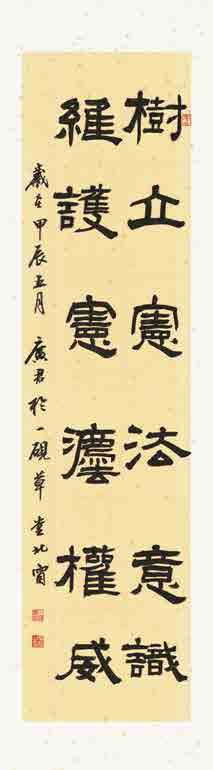 樹立憲法意識
維護憲灋權威
歲在甲辰五月 廣君於一硯草堂北窗